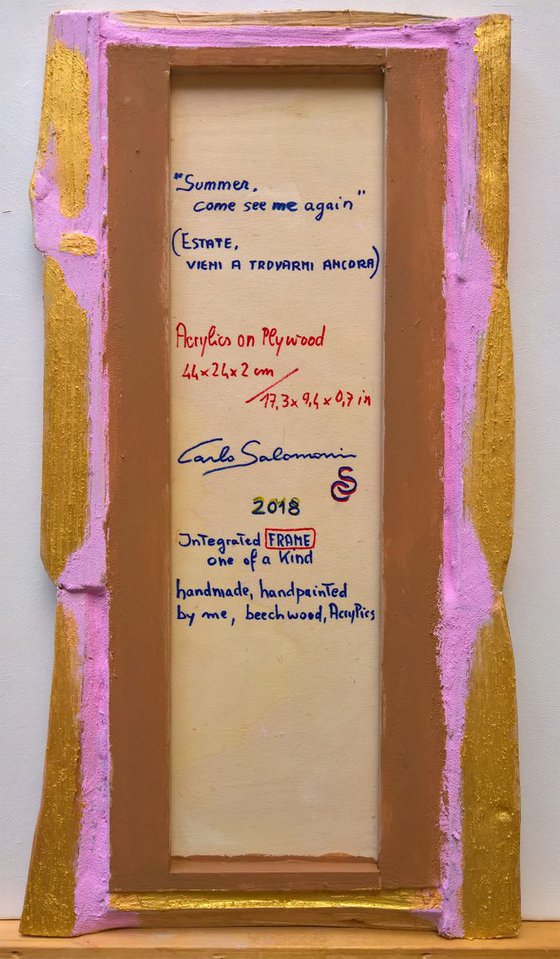 "Summer,
come see me again"
(ESTATE,
VIENI A TROVARMI ANCORA)
Acrylics on Plywood
44x24x2 cm
/17,3x9,4x0,7 in
Carlo Salomoni
2018
Integrated FRAME
one of a Kind
handmade, handpainted
by me, beechwood, Acrylics